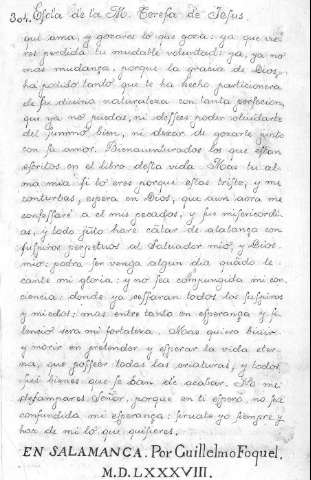 304. Escla de la M. Teresa de Jesus.
que ama, y gozares lo que goza: ya que vie
res perdida tu mudable voluntad: ya, ya no
mas mudança, porque la gracia de Dios
ha podido tanto, que te ha hecho particionera
de su divina naturaleza con tanta perfecion,
que ya no puedas, ni dessees poder olvidarte
del summo bien, ni dexar de gozarle junto
con su amor. Bienaventurados los que estan
escritos en el libro desta vida. Mas tu al
ma mia: si lo eres porque estas triste, y me
conturbas, espera en Dios, que aun aora me
confessare a el mis pecados, y sus misericordi
as, y todo junto hare cãtar de alabança con
suspiros perpetuos al Salvador mio, y Dios
mio: podra ser venga algun dia quãdo le
cante mi gloria: y no sea compungida mi con
ciencia: donde ya cessaran todos los suspiros
y miedos: mas entre tanto en esperança y si
lencio sera mi fortaleza. Mas quiero bivir
y morir en pretender y esperar la vida eter
na, que posseer todas las criaturas, y todos
sus bienes que se han de acabar. No me
desampares Señor, porque en ti espero no sea
confundida mi esperança: sirvate yo siempre y
haz de mi lo que quisieres.
EN SALAMANCA. Por Guillelmo Foquel.
M.D.LXXXVIII.